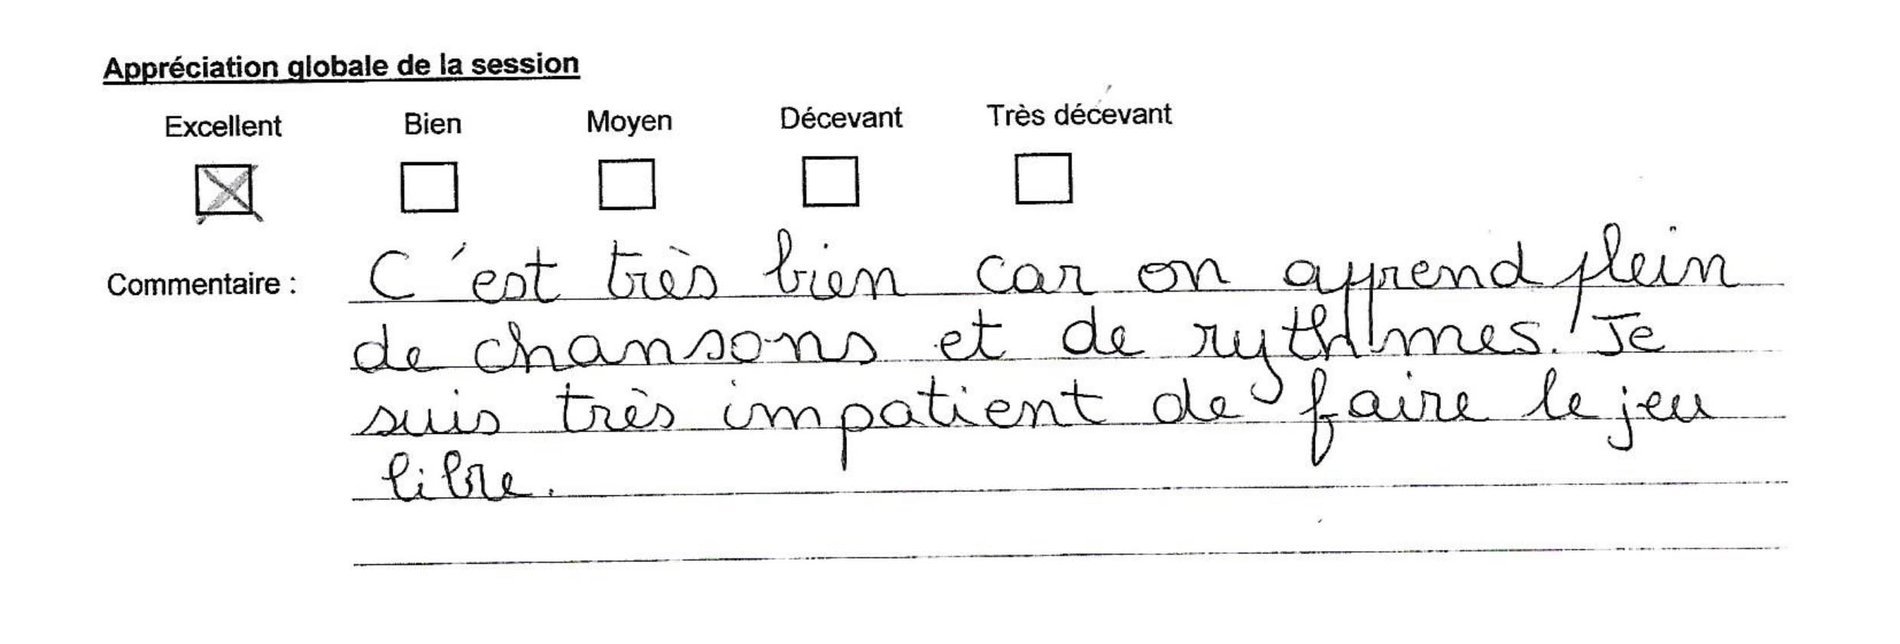 Appréciation globale de la session
Excellent Bien Moyen Décevant Très décevant
Commentaire : C'est très bien car on apprend plein
de chansons et de rythmes. Je
suis très impatient de faire le jeu
libre.